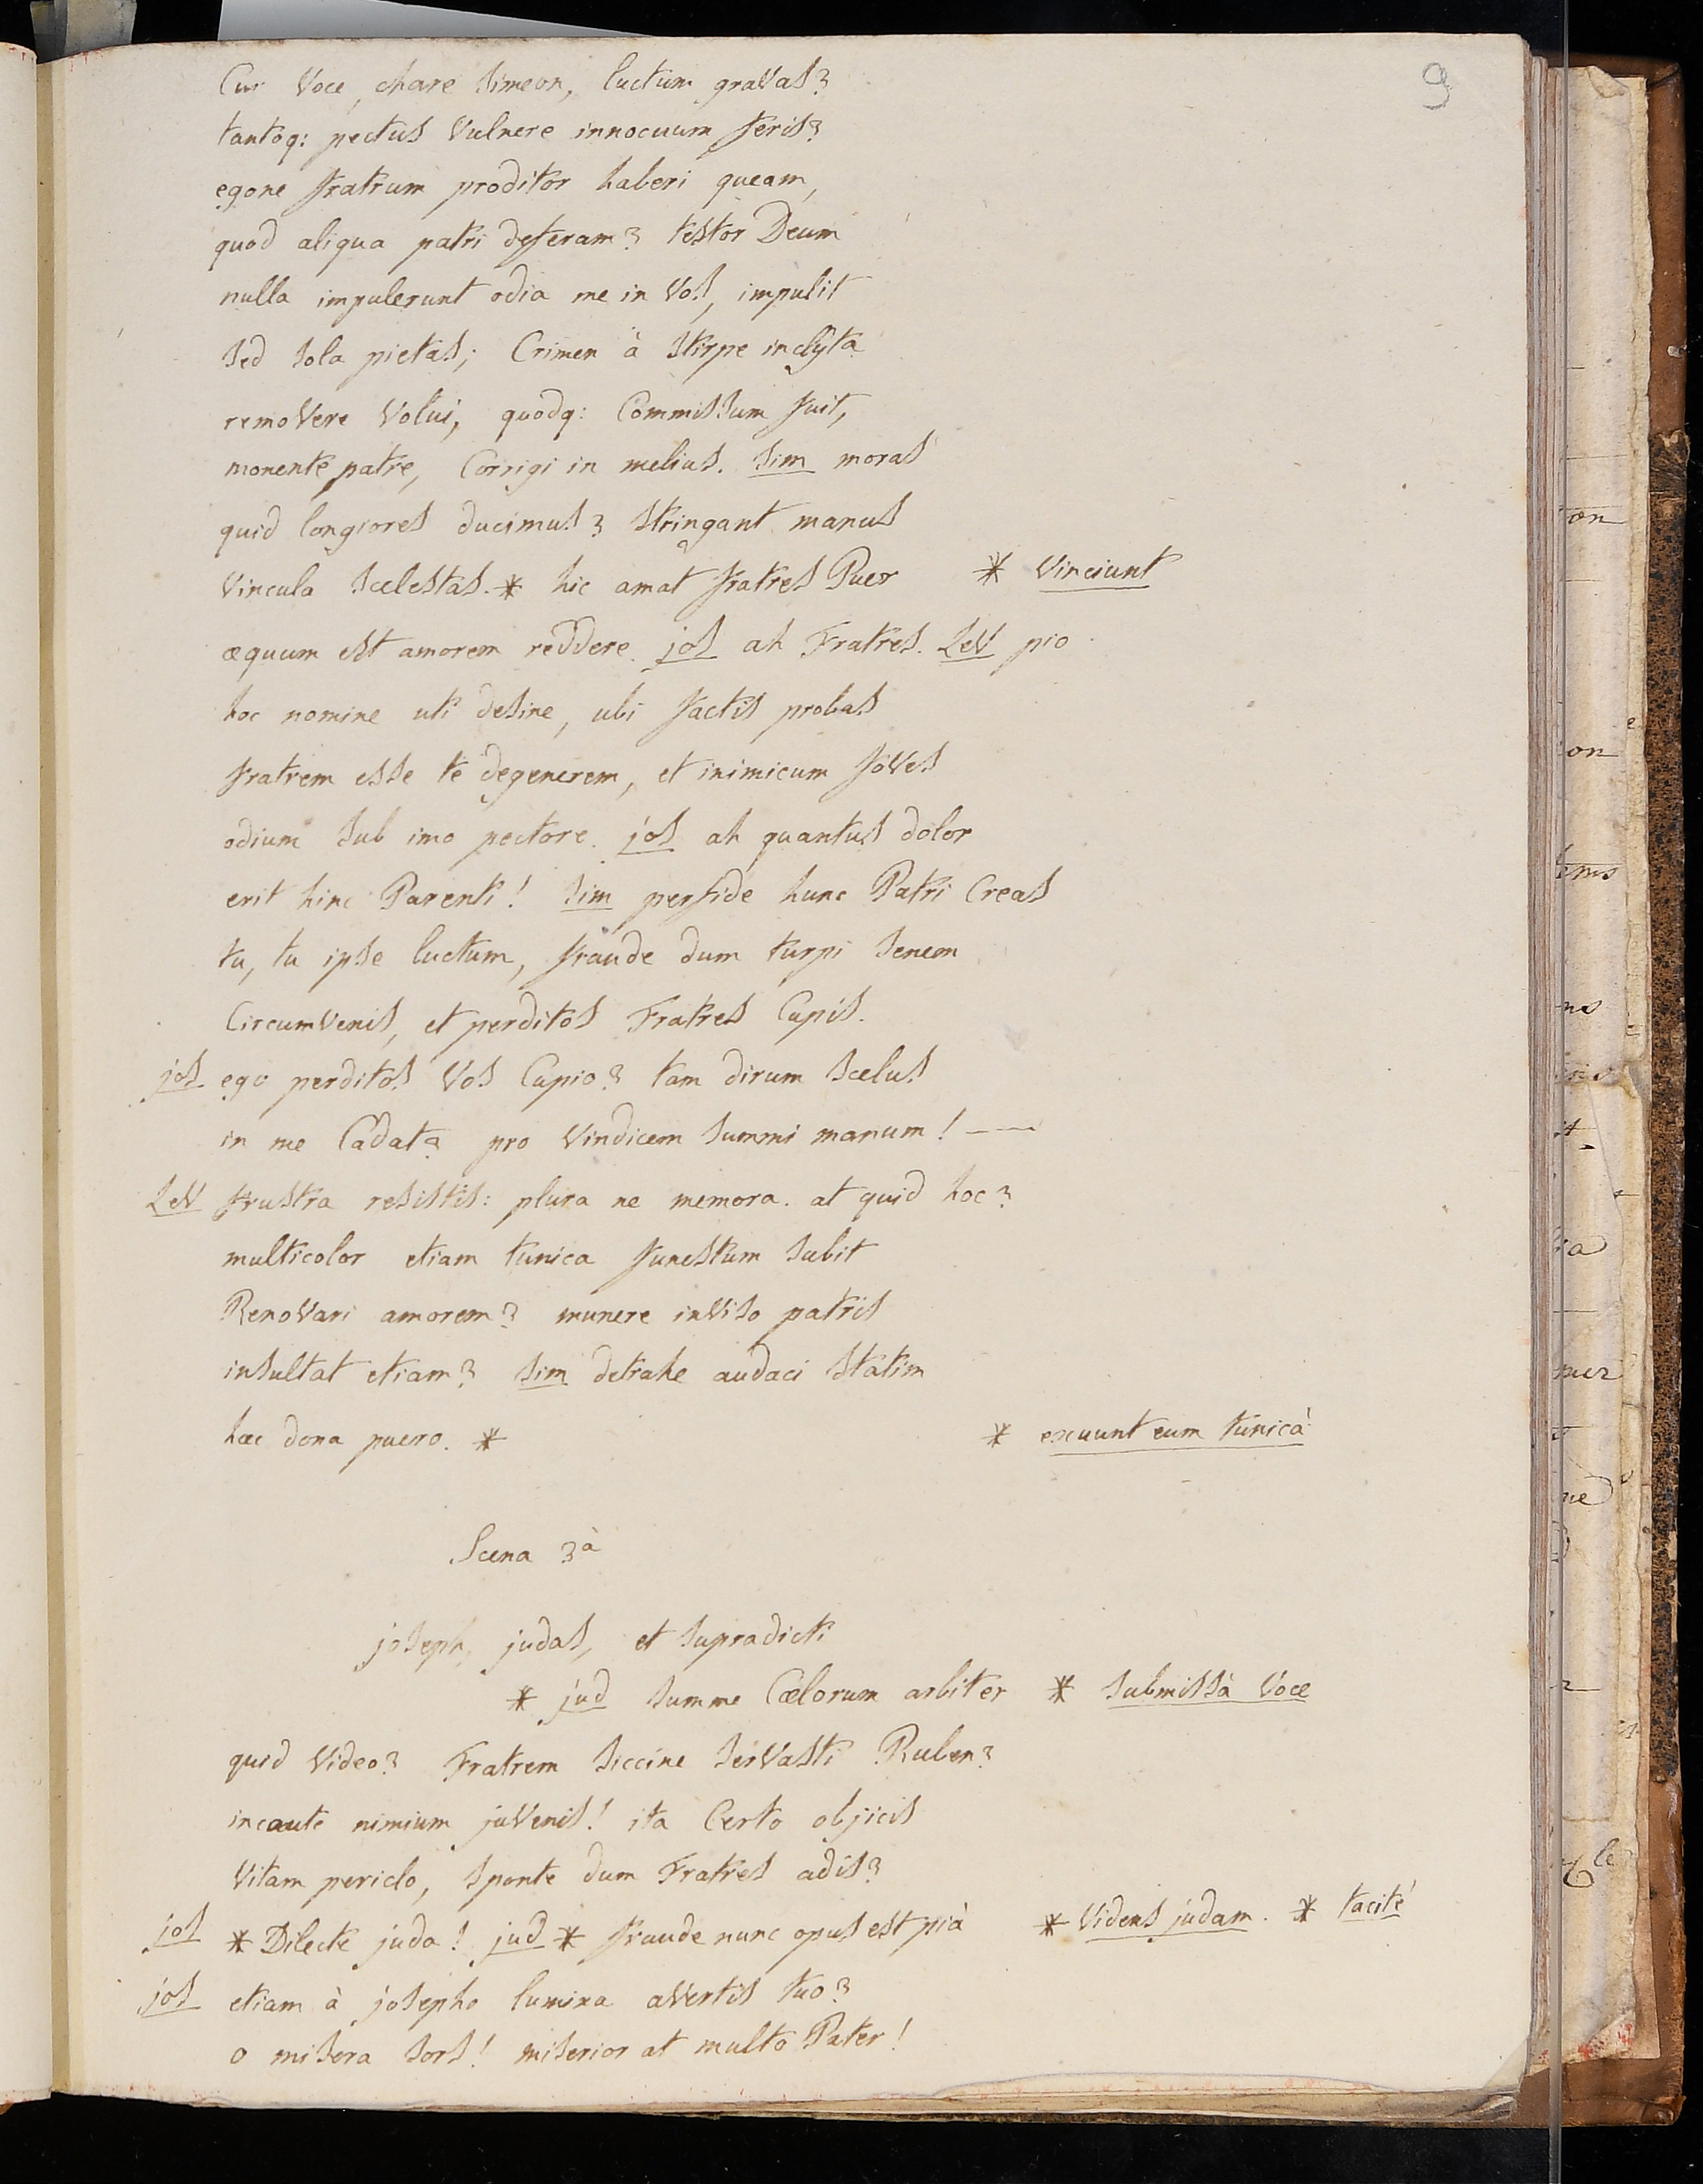 9
Cur Voce, chare Simeon, luctum graVas?
tantoq: pectus Vulnere innocuum feris?
egone fratrum proditor haberi queam,
quod aliqua patri deferam? testor Deum
nulla impulerunt odia me in Vos, impulit
sed sola pietas; Crimen à stirpe inclyta
remoVere Volui, quodq: Commissum fuit,
monente patre, Corrigi in melius. Sim moras
quid longiores ducimus? stringant manus
Vincula scelestas. * hic amat fratres Puer * Vinciunt
æquum est amorem reddere. jos ah Fratres. LeV pio
hoc nomine uti desine, ubi factis probas
fratrem esse te degenerem, et inimicum foVes
odium sub imo pectore. jos ah quantus dolor
erit hinc Parenti! Sim perfide hunc Patri Creas
tu, tu ipse luctum, fraude dum turpi senem
CircumVenis, et perditos Fratres Cupis.
jos ego perditos Vos Cupio? tam dirum scelus
in me Cadat? pro Vindicem summi manum! —
LeV frustra resistis: plura ne memora. at quid hoc?
multicolor etiam tunica funestum subit
RenoVari amorem? munere inViso patris
insultat etiam? Sim detrahe audaci statim
hæc dona puero. * * exuunt eum tunicà
Scena 3à
joseph, judas, et supradicti
* jud summe Cælorum arbiter * submissà Voce
quid Video? Fratrem siccine serVasti Ruben?
incaute nimium juVenis! ita Certo objicis
Vitam periclo, sponte dum Fratres adis?
jos * Dilecte juda! jud * fraude nunc opus est pià * Videns judam. * tacité
jos etiam à josepho lumina aVertis tuo?
o misera sors! miserior at multo Pater!